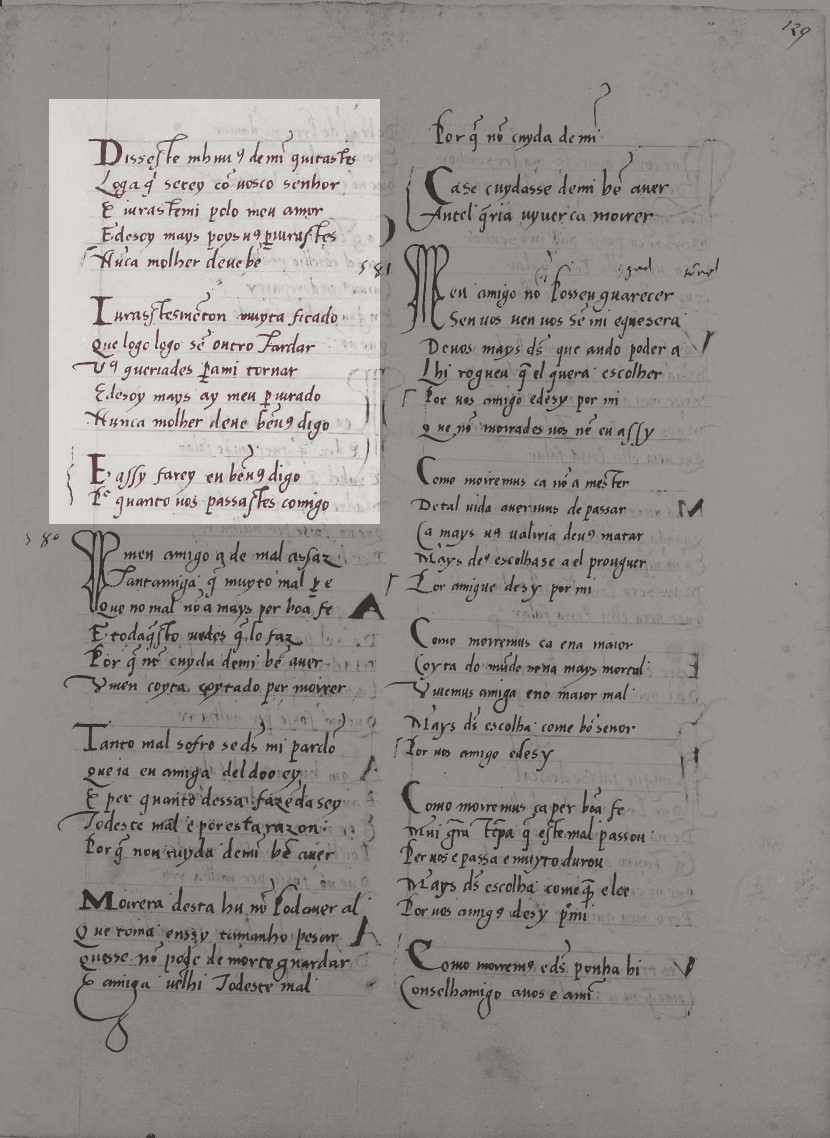 129
Dissestẽ mh uu9 de mĩ quitastes
Loga q̃ serey cõ uosco senhor
E iurastemi polo meu amor
E desoy mays poys u9 ꝑiurastes
Nũca molher deue bẽ
Iurastes mẽton muyta ficado
Que logo logo sẽ outro Tardar
U9 queriades ꝑa mi tornar
E desoy mays ay meu ꝑiurado
Nunca molher deue bẽ u9 digo
E assy farey eu bẽ u9 digo
Por quanto uos passastes comigo
580
O meu amigo q̃ de mal assaz
Tantamiga q̃ muyto mal ꝑ e
Que no mal nõ a mays per bõa fe
E todaq̃sto uedes q̃ lo faz
Por q̃ nõ cuyda demi bẽ auer
Viuen coyta coytado per moirer
Tanto mal sofro se ds̃ mi pardõ
Que ia eu amiga del doo ey
E per quanto dessa fazẽda sey
Todeste mal e por esta razon
Por q̃ non cuyda demi bẽ auer
Moirera desta hu nõ Podauer al
Que toma enssy tamanho pesar
Quesse nõ pode de morte guardar
E amiga uẽlhi Todeste mal
Por q̃ nõ cuyda de mi
Ca se cuydasse demi bẽ auer
Antel q̃ria uyuer ca moirer
581
Meu amigo nõ Posseu guarecer
Sen uos nen uos sẽ mi e que sera
De uos mays ds̃ que ando poder a
Lhi rogueu q̃ el quera escolher
Por uos amigo e desy por mi
Que nõ moirades uos nẽ eu assy
Como moiremus ca nõ a mester
De tal uida auermus de passar
Ca mays u9 ualiria deu9 matar
Mays de9 escolha se a el prouguer
Por amigue desy por mi
Como moiremus ca ena maior
Coyta do mũdo nena mays mortal
Viuemus amiga eno maior mal
Mays ds̃ escolha come bõ senor
Por uos amigo e desy
Como moiremus ca per bõa fe
Mui grã Tẽpa q̃ este mal passou
Per uos e passa e muyto durou
Mays ds̃ escolha come quẽ ele e
Por uos amig9 desy p mi
Como moirem9 e ds̃ ponha hi
Conselhamigo auos e ami